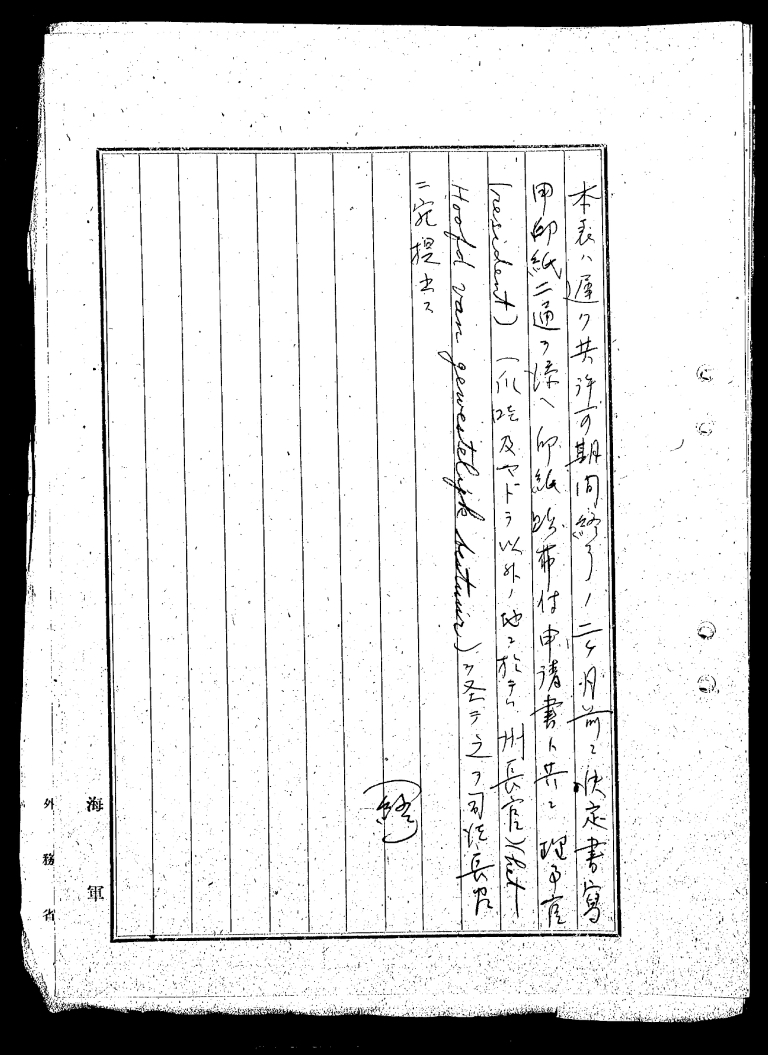 本表ハ遅クモ許可期間終了ノ二ケ月前ニ決定書寫
用印紙二通ヲ添ヘ印紙貼布付申請書ト共ニ理事官
(resident)(爪哇及マドラ以外ノ地ニ於テハ州長官)(het
Hoofd van gewestelijk bestuur)ヲ経テ之ヲ司法長官
ニ宛提出ス
終
海軍
外務省